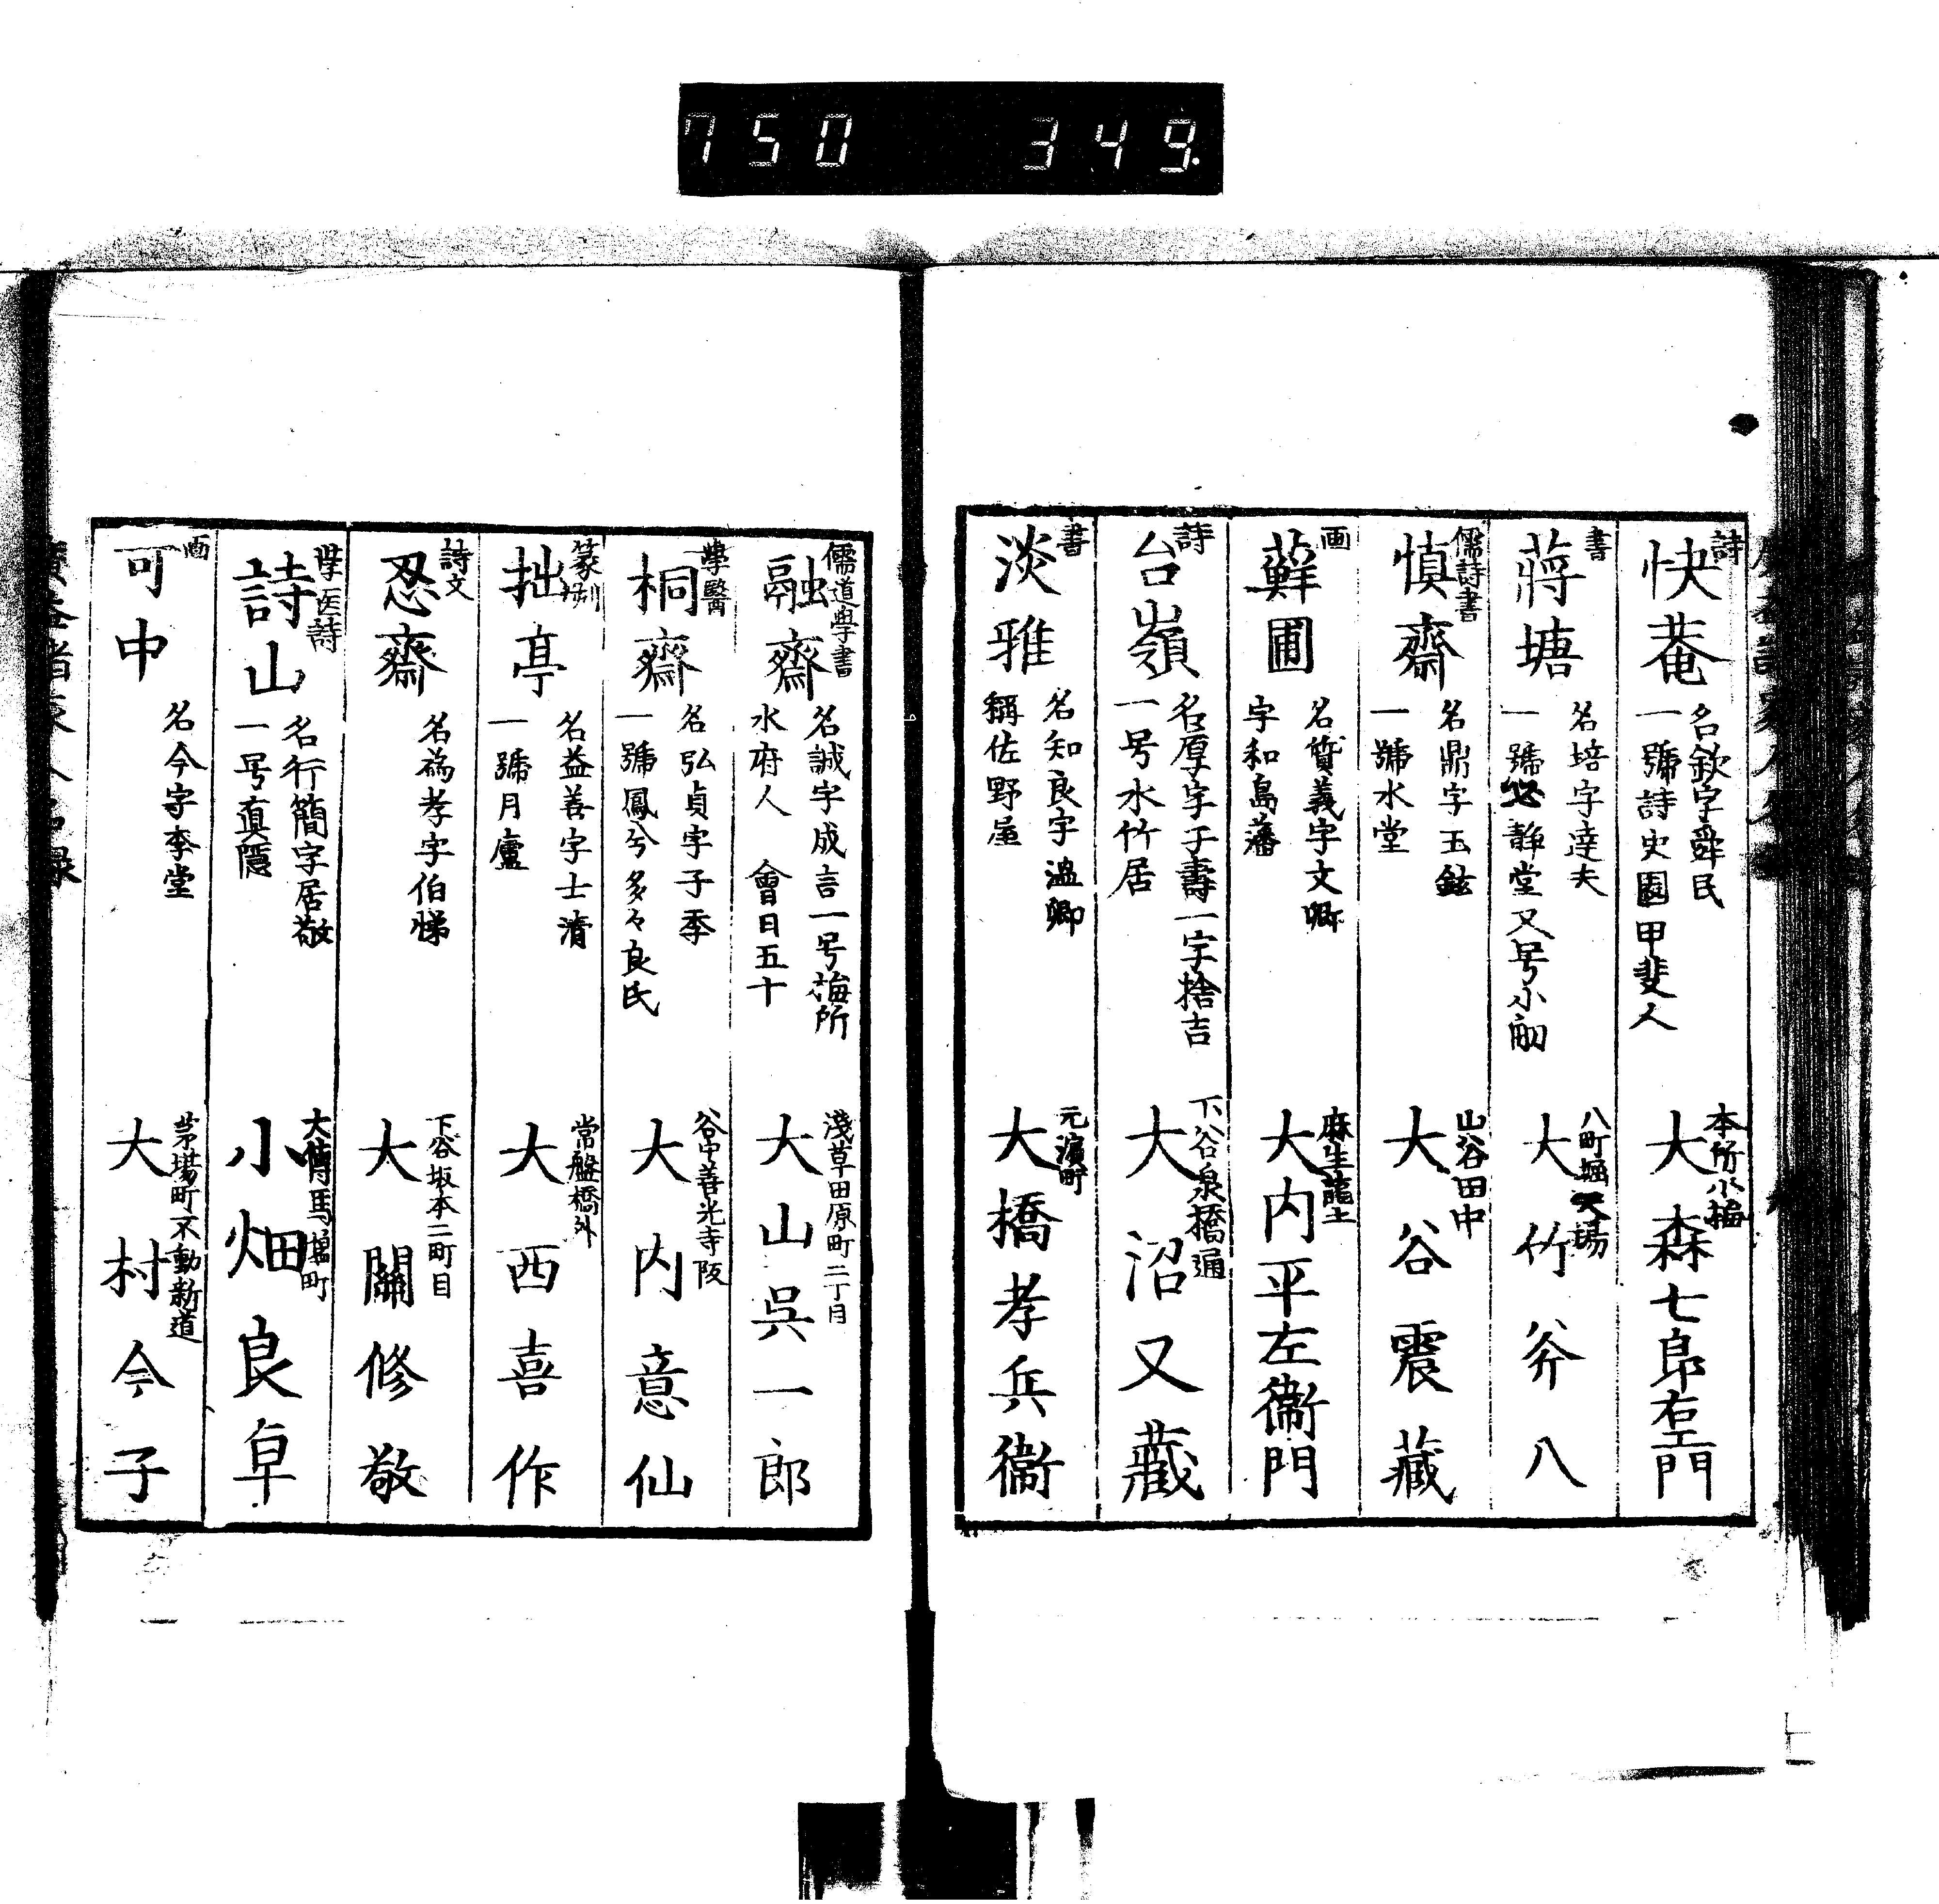 750 349
詩
快菴
名欽字舜民
一號詩史園甲斐人
本所小梅
大森七郎右エ門
書
蔣塘
名培字達夫
一號必靜堂又号小舠
八町堀大塲
大竹斧八
儒詩書
慎齋
名鼎字玉鉉
一號水堂
山谷田中
大谷震藏
画
蘚圃
名質義字文卿
宇和島藩
麻生龍土
大内平左衞門
詩
台嶺
名厚字子壽一字捨吉
一号水竹居
下谷泉橋通
大沼又藏
書
淡雅
名知良字溫卿
稱佐野屋
元濱町
大橋孝兵衞
儒道學書
融齋
名誠字成言一号梅所
水府人 會日五十
淺草田原町二丁目
大山呉一郎
學醫
桐齋
名弘貞字子季
一號鳳兮多々良氏
谷中善光寺阪
大内意仙
篆刻
拙亭
名益善字士清
一號月廬
常盤橋外
大西喜作
詩文
忍齋
名為孝字伯悌
下谷坂本二町目
大關修敬
學医詩
詩山
名行簡字居敬
一号真隱
大傳馬塩町
小畑良卓
画
可中
名今字李堂
茅場町不動新道
大村今子